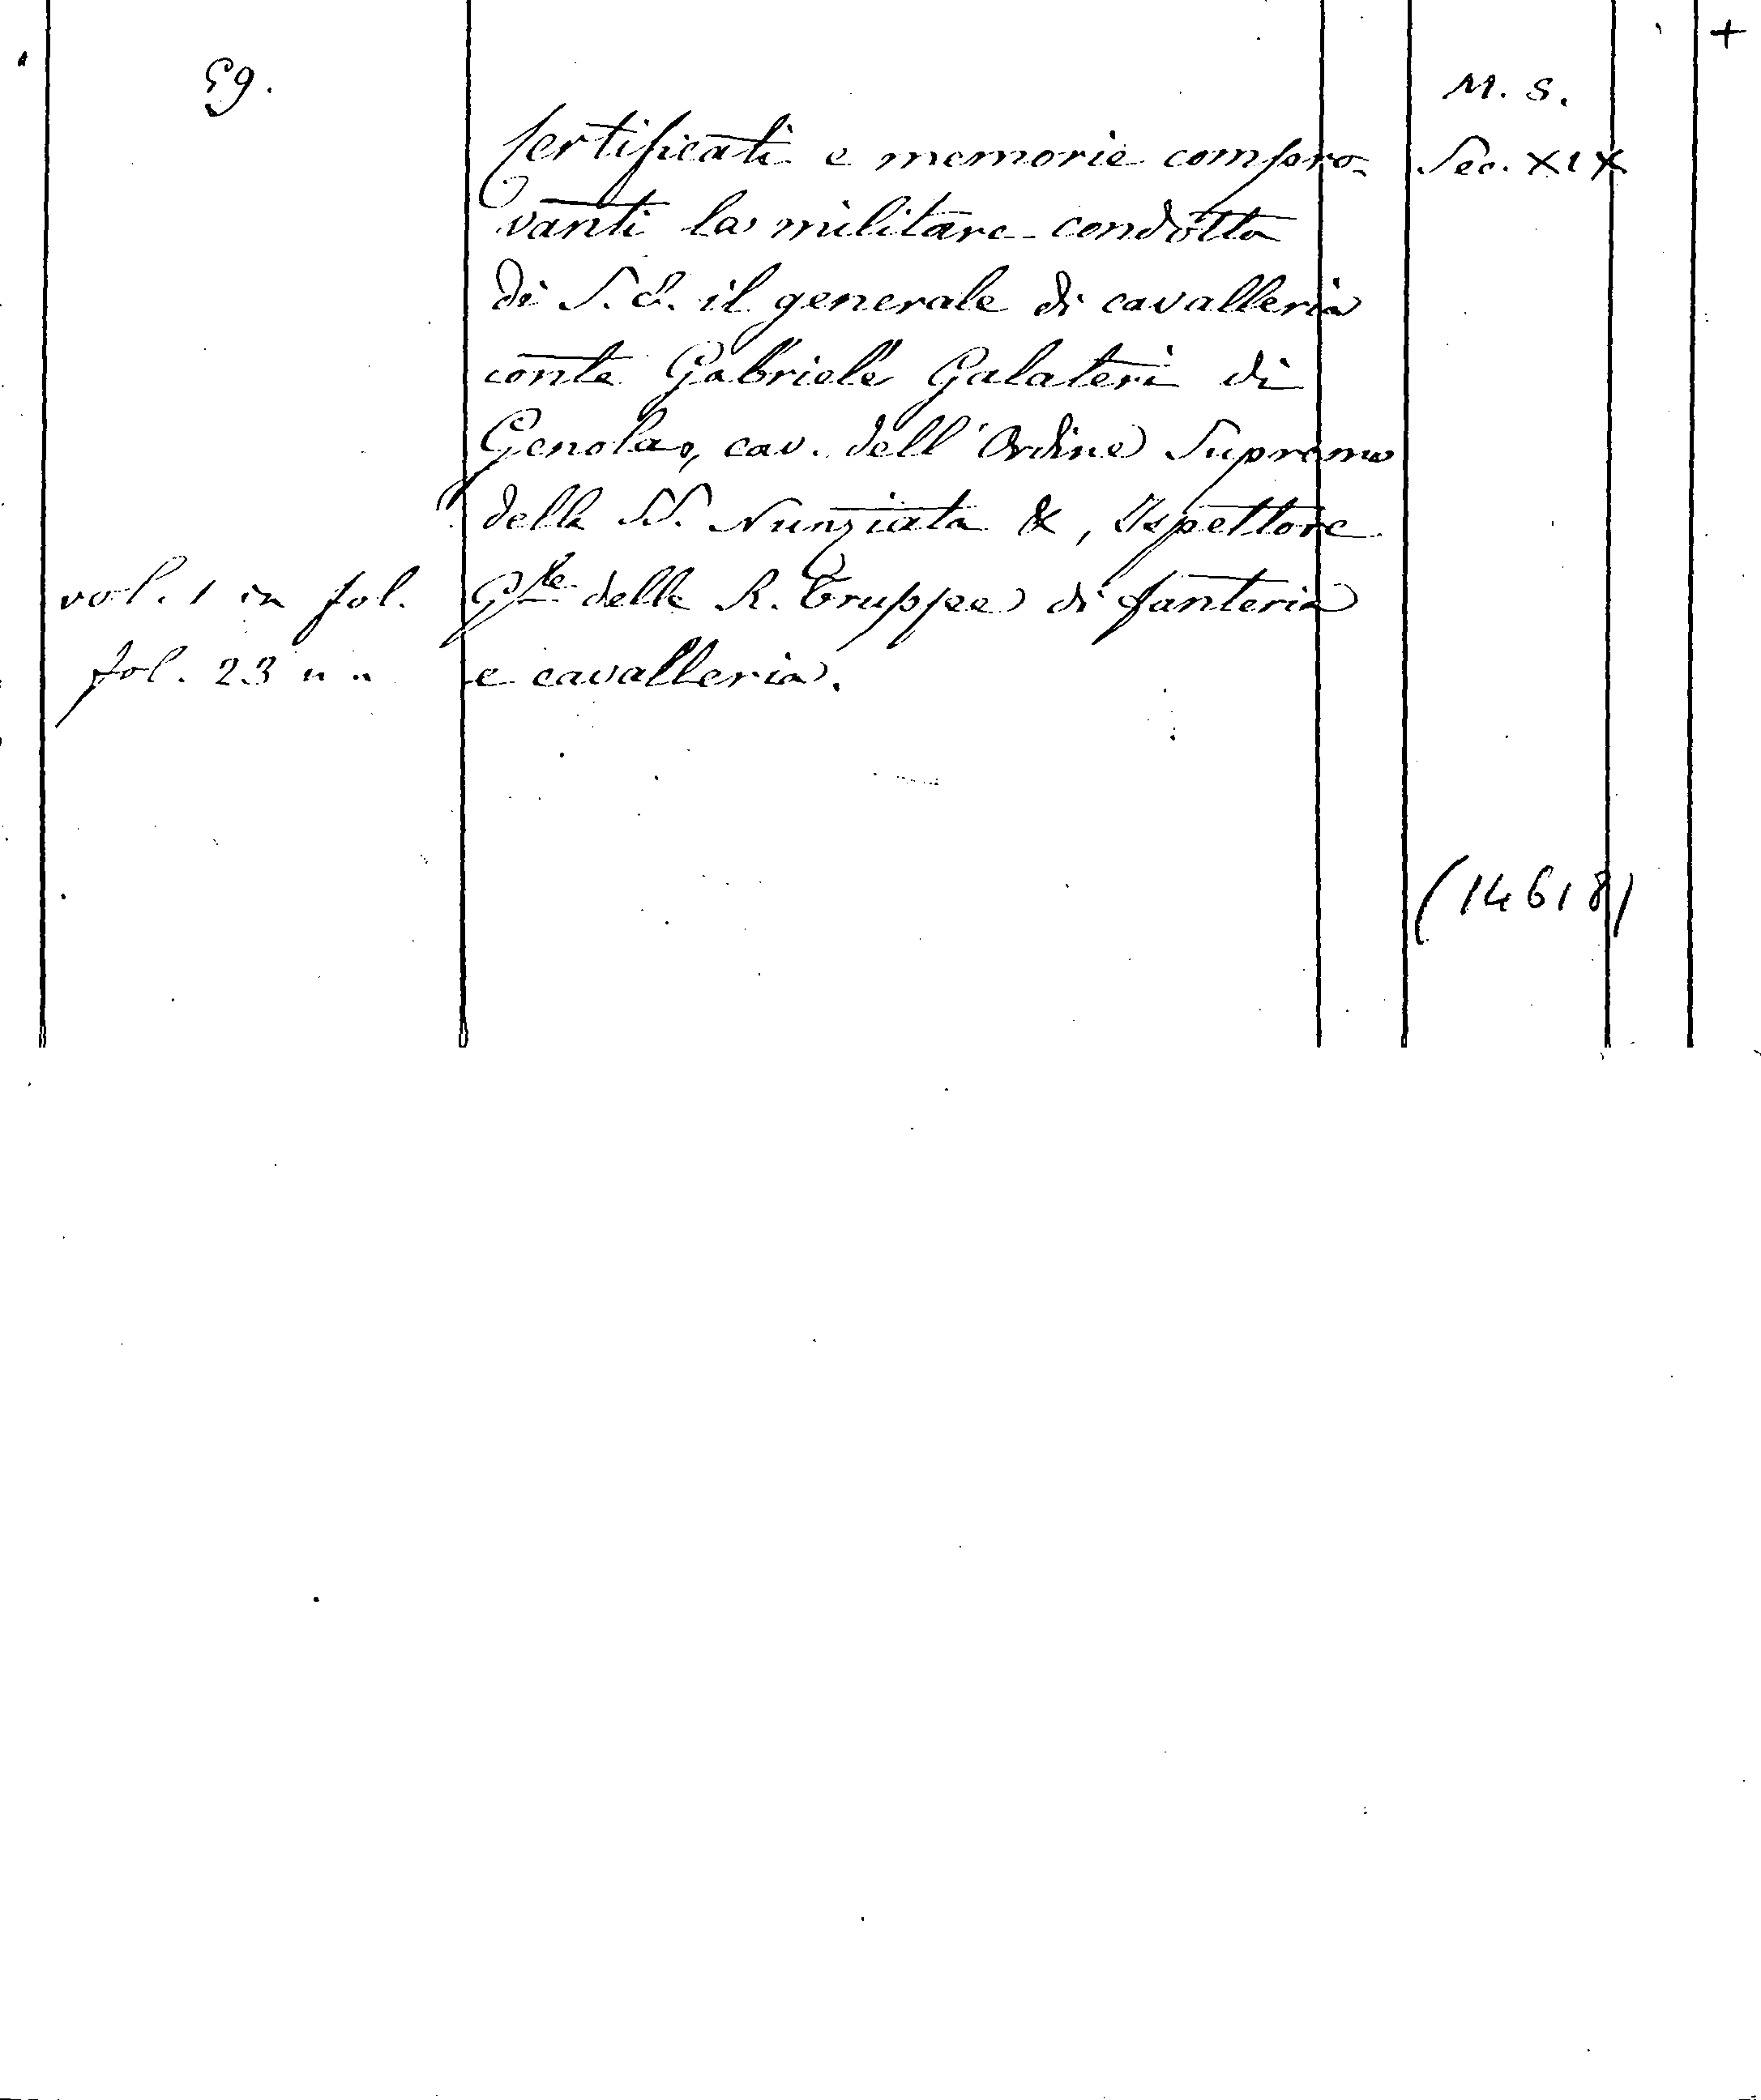 +
Eg.
M. S.
Certificati e memorie compro-
Sec. XIX
vanti la militare condotta
di S. E. il generale di cavalleria
conte Gabriele Galateri di
Genola, cav. dell'Ordine Supremo
della SS. Nunziata &, Ispettore
vol. 1 in fol.
Gle delle R. Truppe di fanteria
fol. 23 n n
e cavalleria.
(14618)